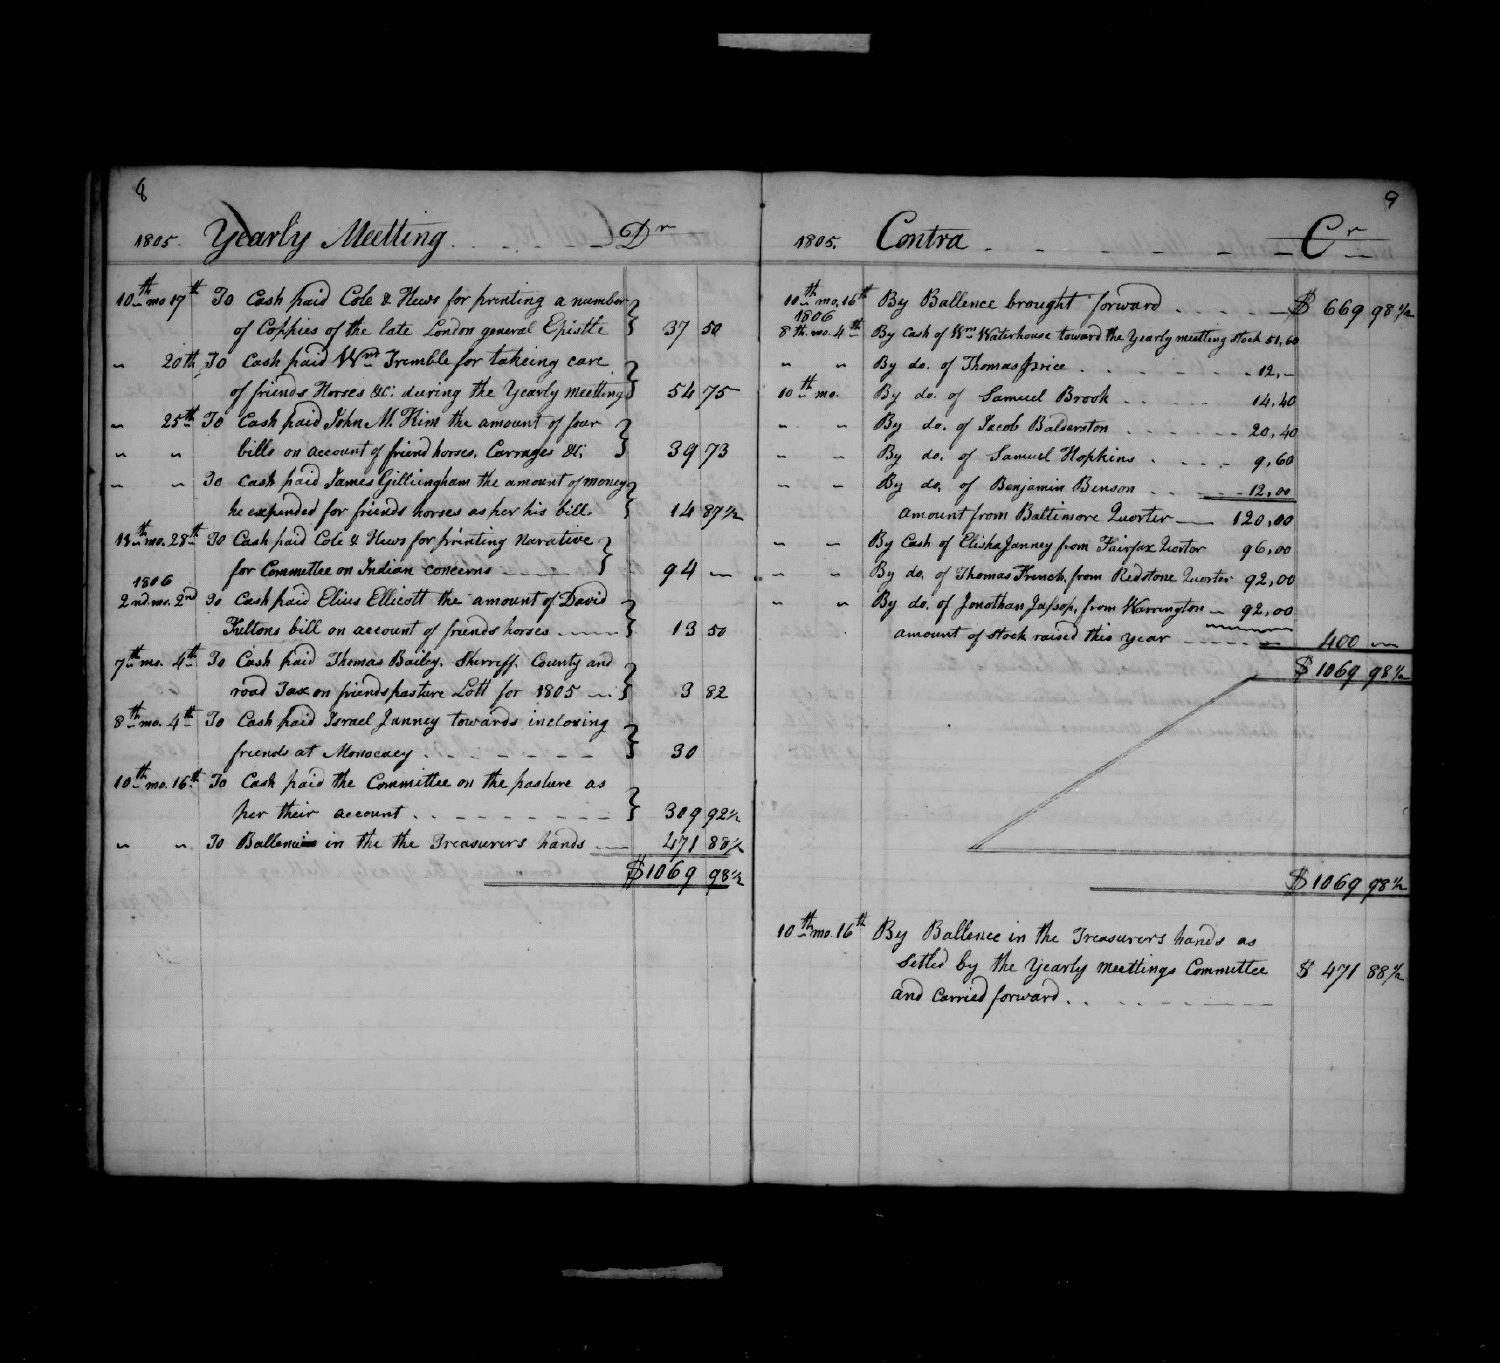 8
1805. Yearly Meetting Dr
10th mo 17th To Cash paid Cole & Hews for printing a number
of Coppies of the late London general Epistle 37 50
" 20th To Cash paid Wm Trimble for takeing care
of friends Horses &c. during the Yearly meetting 54 75
" 25th To Cash paid John M. Kim the amount of four
" " bills on account of friend horses, Carrages &c. 39 73
" " To Cash paid James Gillingham the amount of money
he expended for friends horses as per his bill. 14 87½
mo. 28th To Cash paid Cole & Hews for printing Narative
for Committee on Indian concerns 94 —
1806
2nd mo. 2nd To Cash paid Elius Ellicott the amount of David
Fultons bill on account of friends horses 13 50
7th mo. 4th To Cash paid Thomas Bailey, Sherreff, County and
road Tax on friends pasture Lott for 1805 3 82
8th mo. 4th To Cash paid Israel Janney towards inclosing
friends at Monocacy 30
10th mo. 16th To Cash paid the Committee on the pasture as
per their account 309 92½
" " To Ballence in the the Treasurers hands 471 88½
$1069 98½
9
1805. Contra Cr
10th mo. 16th By Ballence brought forward $ 669 98½
1806
8th mo. 4th By Cash of Wm Waterhouse toward the Yearly meetting stock 51,60
" " By do. of Thomas Price 12,—
10th mo. By do. of Samuel Brook 14,40
" " By do. of Jacob Balderston 20,40
" " By do. of Samuel Hopkins 9,60
" " By do. of Benjamin Benson 12,00
amount from Baltimore Quorter 120,00
" " By Cash of Elisha Janney from Fairfax Quortor 96,00
" " By do. of Thomas French, from Redstone Quorter 92,00
" " By do. of Jonothan Jessop, from Warrington 92,00
amount of stock raised this year 400 —
$ 1069 98½
$ 1069 98½
10th mo. 16th By Ballence in the Treasurers hands as
Setled by the Yearly meettings Committee $ 471 88½
and Carried forward